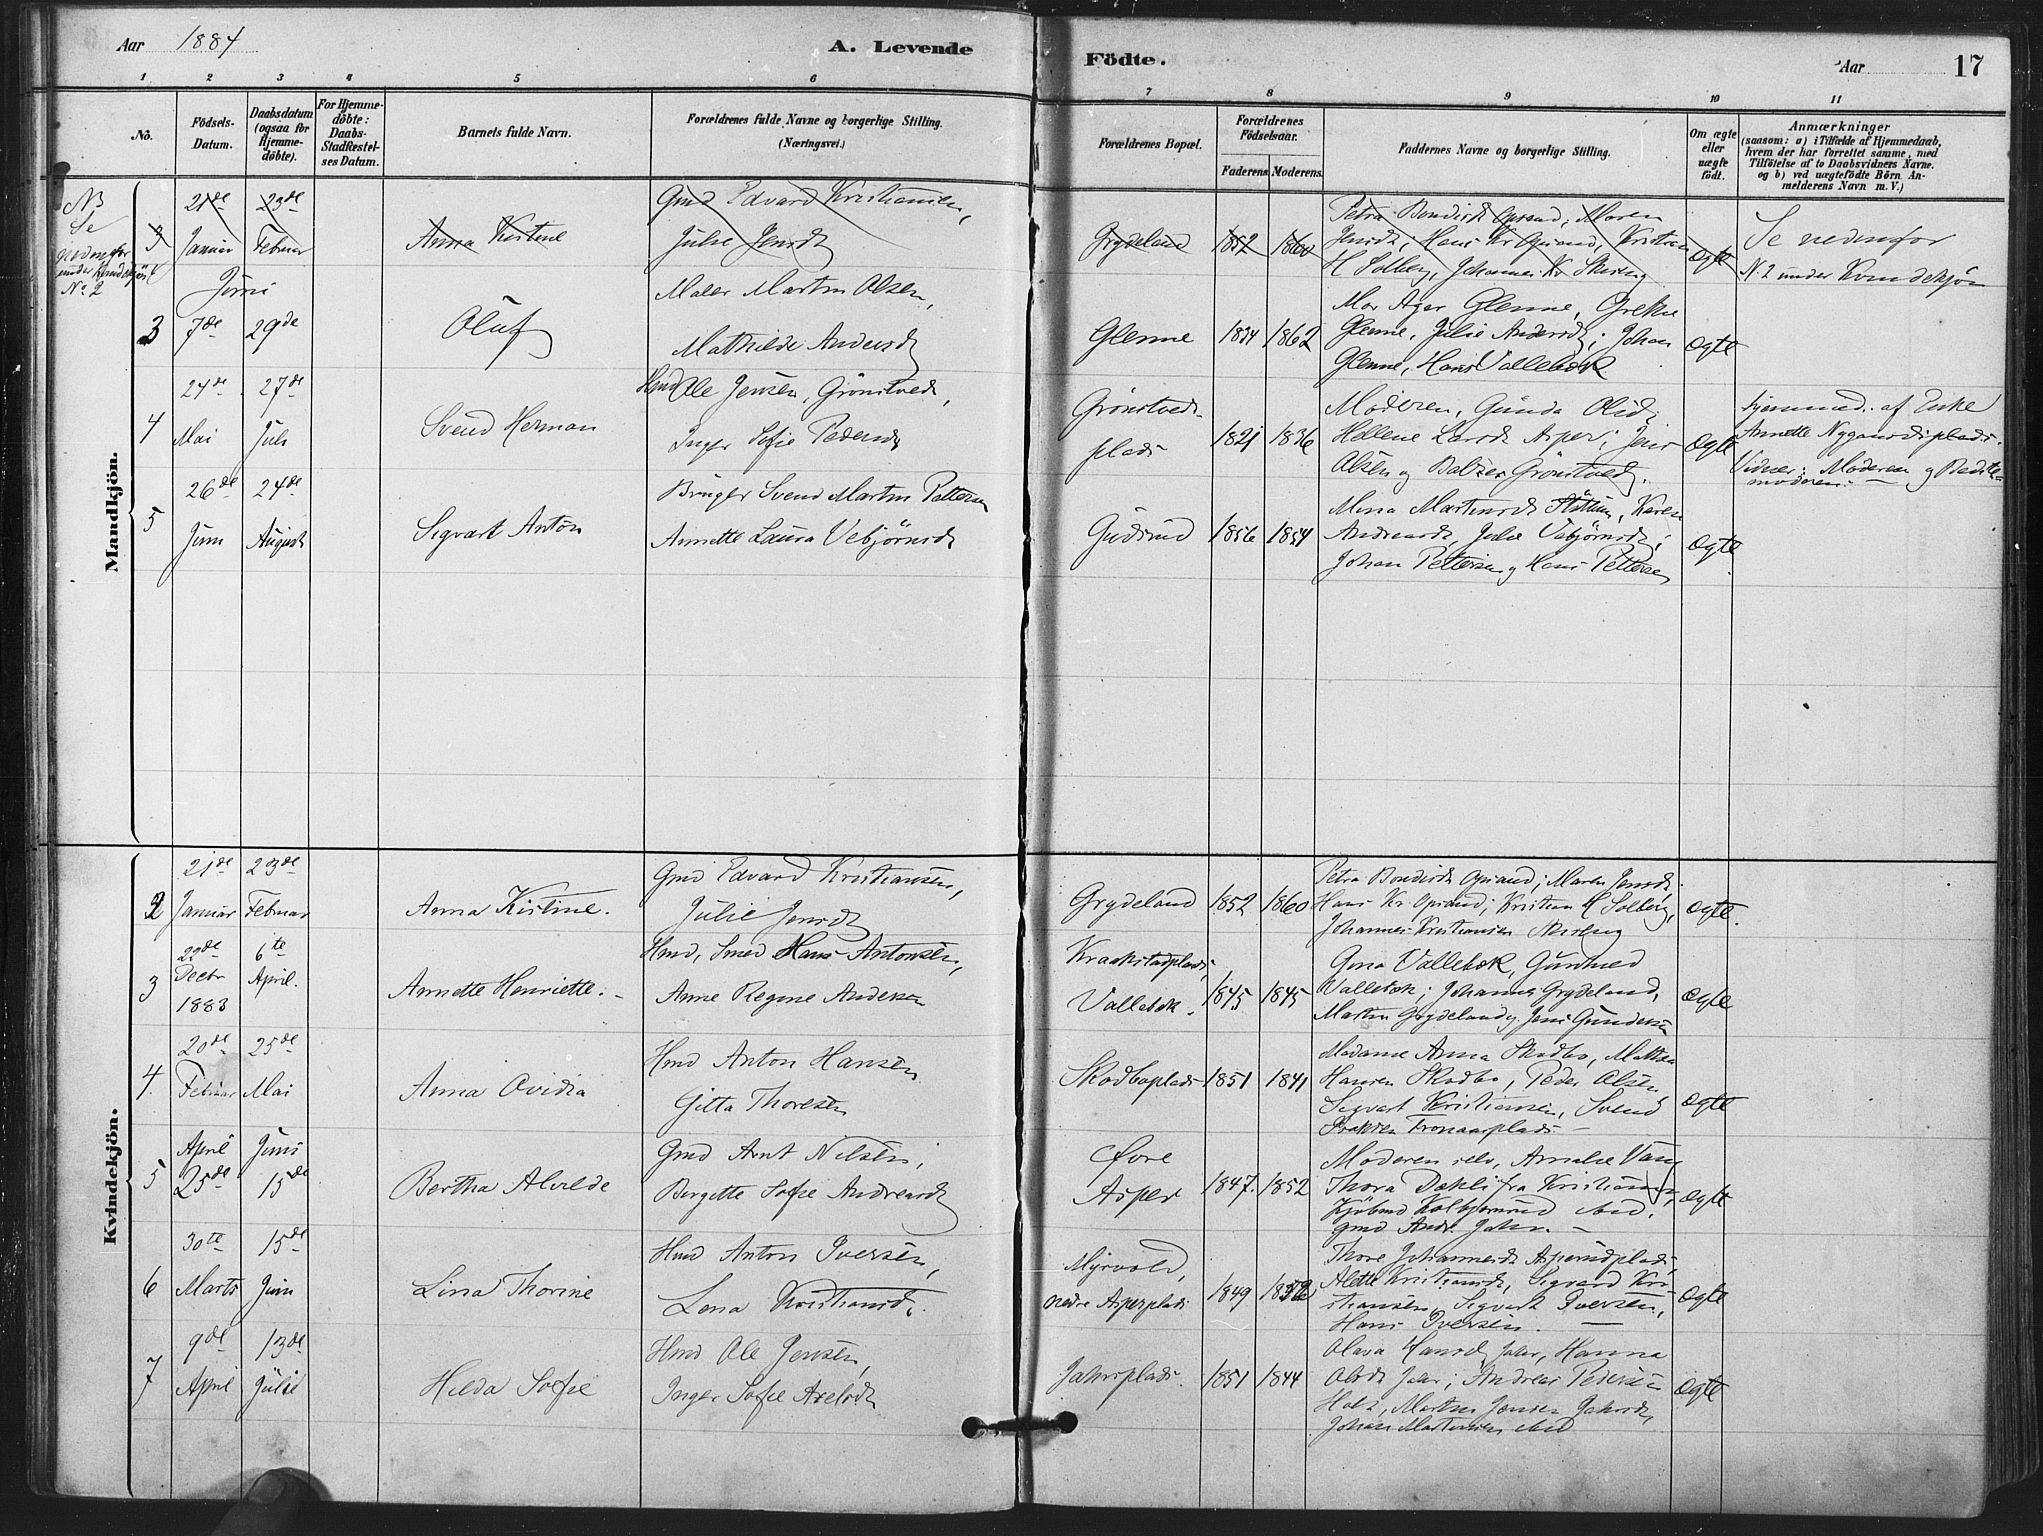 Aar 1884
A. Levende
Födte.
Aar
17
1 2 3 4 5 6 7 8 9 10 11
Nô.
Födsels-
Datum.
Daabsdatum
(ogsaa for
Hjemme-
döbte).
For Hjemme-
döbte:
Daabs-
Stadfæstel-
ses Datum.
Barnets fulde Navn.
Forældrenes fulde Navne og borgerlige Stilling.
(Næringsvei.)
Forældrenes Bopæl.
Forældrenes
Födselsaar.
Faderens Moderens
Faddernes Navne og borgerlige Stilling.
Om ægte
eller
uægte
födt.
Anmærkninger
(saasom: a) i Tilfælde af Hjemmedaab,
hvem der har forrettet samme, med
Tilföielse af to Daabsvidners Navne.
og b) ved uægtefödte Börn An-
melderens Navn m. V.)
Mandkjön.
NB
Se
nedenfor
under Kvindekjön
No. 2
3
21de 23de
Januar Februar
Anna Kistine
Gmd Edvard Kristiansen,
Julie Jensdt
Grydeland
1852 1860
Petra Bendixdt Opsand, Maren
Jensdt; Hans Kr Opsand, Kristian
H Solberg, Johannes Kr
Ægte
Se nedenfor
N. 2 under Kvindekjön
3
Juni
7de 29de
Oluf
Maler Martin Olsen,
Mathilde Andersdt
Glenne
1834 1862
Mor Ager Glenne, Grethe
Glenne, Julie Andersdt; Johan
Glenne, Hans Vallebæk
Ægte
4
24de 27de
Mai Juli
Svend Herman
Hmd Ole Jensen, Grönstvedt,
Inger Sofie Pedersdt
Grönstvedt-
plads
1821 1836
Moderen, Gunda Olsdt;
Hellene Larsdt Asper; Jens
Olsen og Baltzer Grönstvedt.
Ægte
hjemmed. af Enke
Annette Nygaardsplads.
Vidner: Moderen og Bedste-
moderen.
5
26de 24de
Juni August
Sigvart Anton
Bruger Svend Martin Pettersen
Annette Laura Vebjörnsdt
Gudsrud
1856 1854
Mina Martinsdt Karen
Andreasdt, Julie Vebjörnsdt;
Johan Pettersen og Hans Pettersen
Ægte
Kvindekjön.
2
21de 23de
Januar Februar
Anna Kistine.
Gmd Edvard Kristiansen,
Julie Jensdt
Grydeland
1852 1860
Petra Bendixdt Opsand; Maren Jensdt;
Hans Kr. Opsand; Kristian H Solberg,
Johannes Kristiansen
Ægte.
3
22de 6te
Decbr April.
1883
Annette Henriette.
Hmd, Smed Hans Antonsen,
Anne Regine Andersen
Kraakstadplads,
Vallebæk.
1845 1845
Gina Vallebæk, Gunhild
Vallebæk; Johannes Grydeland,
Martin Grydeland og Jens Gundersen
Ægte
4.
20de 25de
Februar Mai
Anna Ovidia
Hmd Anton Hansen
Gitta Thoresen
Skodboplads
1851 1841
Madame Anna Skodbo, Mathea
Hansen Skodbo, Peder Olsen,
Sigvart Kristiansen, Svend
Isaksen Tronaasplads
Ægte
5
April Juni
25de 15de
Bertha Alvilde
Gmd Arnt Nilsen,
Bergette Sofie Andreasdt
Övre
Asper
1847. 1852
Moderen selv, Amalie Vang
Thora Dahli fra Kristiania,
Kjöbmd ibid.
gmd Andr. Jahr.
Ægte
6
30te 15de
Marts Juni
Lina Thorine
Hmd Anton Iversen,
Lena Kristiansdt.
Myrvold,
nedre Asperplads
1849
Thore Johannesdt Asperudplads,
Alette Kristiansdt, Sigvard Kri-
stiansen, Sigvart Iversen,
Hans Iversen.
Ægte
7
9de 13de
April Juli
Hilda Sofie
Hmd Ole Jensen,
Inger Sofie Axelsdt
Jahrsplads.
1851 1844
Olava Hansdt Jahr, Hanna
Olsdt Jahr; Andreas Pedersen
Holt, Martin Jensen
Johan Martinsen ibid
Ægte